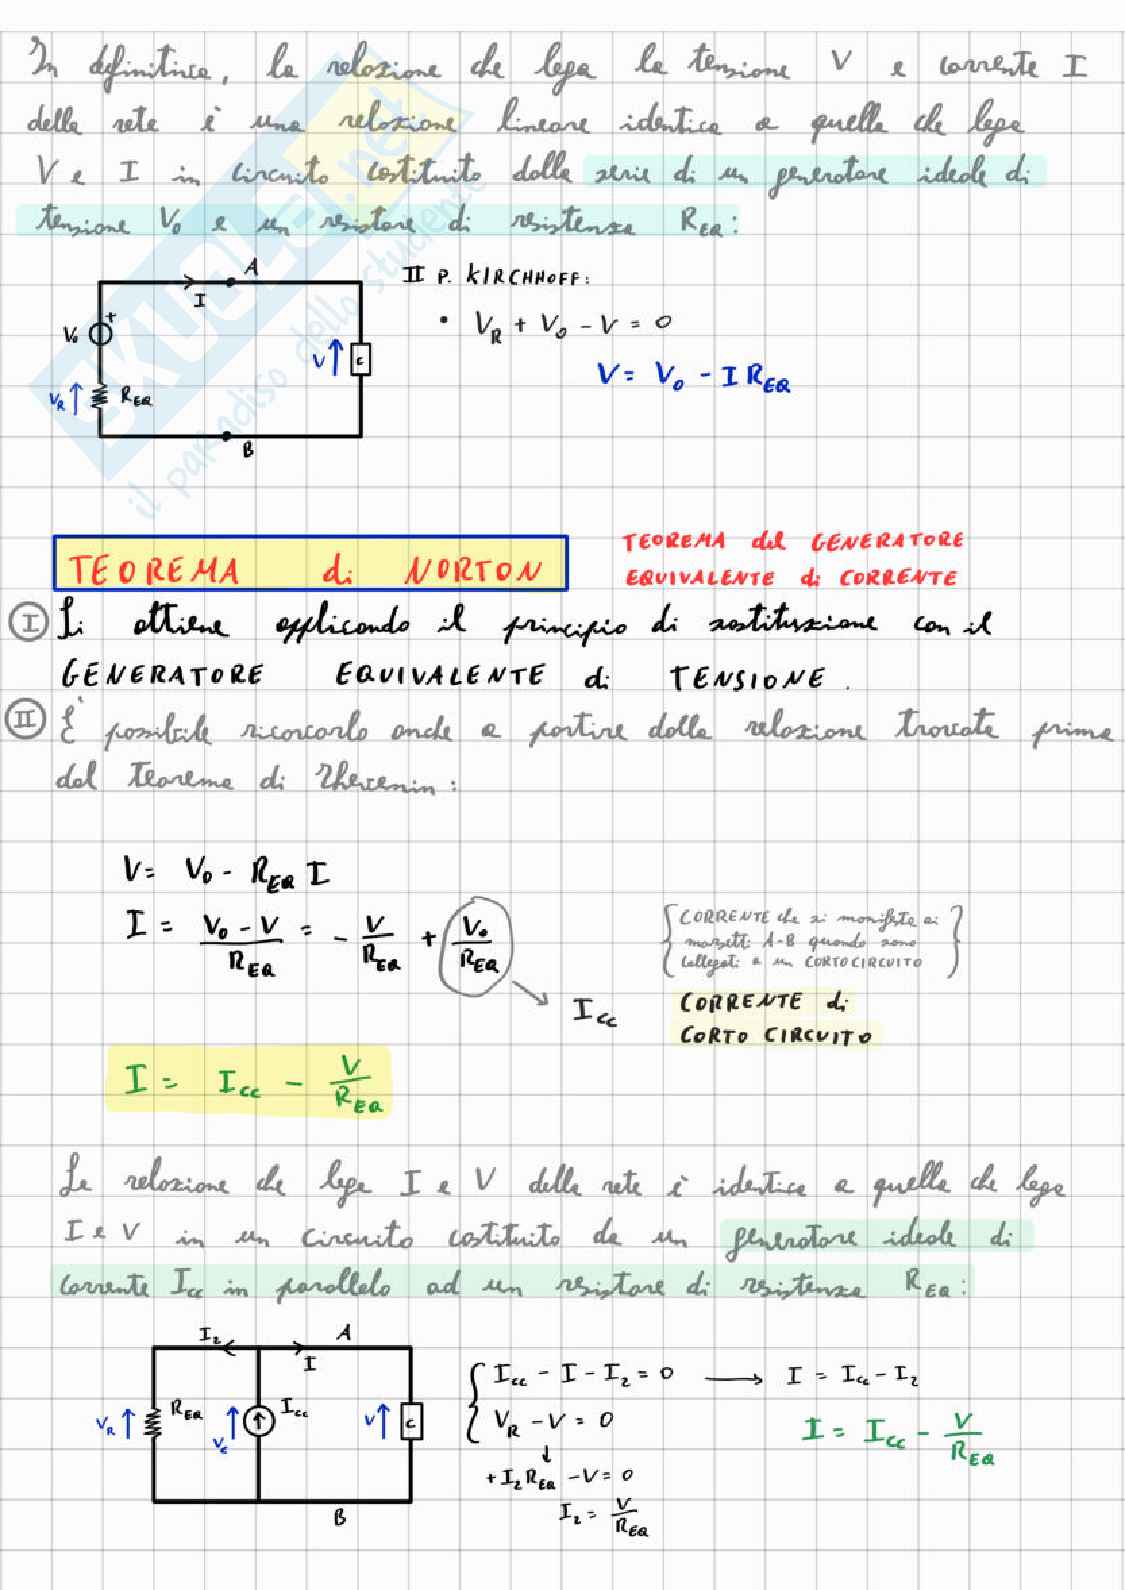 In definitiva, la relazione che lega la tensione V e corrente I
della rete è una relazione lineare identica a quella che lega
V e I in circuito costituito dalla serie di un generatore ideale di
tensione V₀ e un resistore di resistenza R_EQ:
A
I
V₀
+
V
C
V_R
R_EQ
B
II P. KIRCHHOFF:
• V_R + V₀ - V = 0
V = V₀ - I R_EQ
SKUOLA.net
il paradiso dello studente
TEOREMA di NORTON
TEOREMA del GENERATORE
EQUIVALENTE di CORRENTE
I Si ottiene applicando il principio di sostituzione con il
GENERATORE EQUIVALENTE di TENSIONE.
II È possibile ricavarlo anche a partire dalla relazione trovata prima
dal Teorema di Thevenin:
V = V₀ - R_EQ I
I = (V₀ - V)/R_EQ = - V/R_EQ + V₀/R_EQ
I_cc
{CORRENTE che si manifesta ai
morsetti A-B quando sono
collegati a un CORTOCIRCUITO}
CORRENTE di
CORTO CIRCUITO
I = I_cc - V/R_EQ
La relazione che lega I e V della rete è identica a quella che lega
I e V in un circuito costituito da un generatore ideale di
corrente I_cc in parallelo ad un resistore di resistenza R_EQ:
I₂
A
I
V_R
R_EQ
V_c
I_cc
V
C
B
{ I_cc - I - I₂ = 0 → I = I_cc - I₂
V_R - V = 0
↓
+ I₂ R_EQ - V = 0
I₂ = V/R_EQ
I = I_cc - V/R_EQ